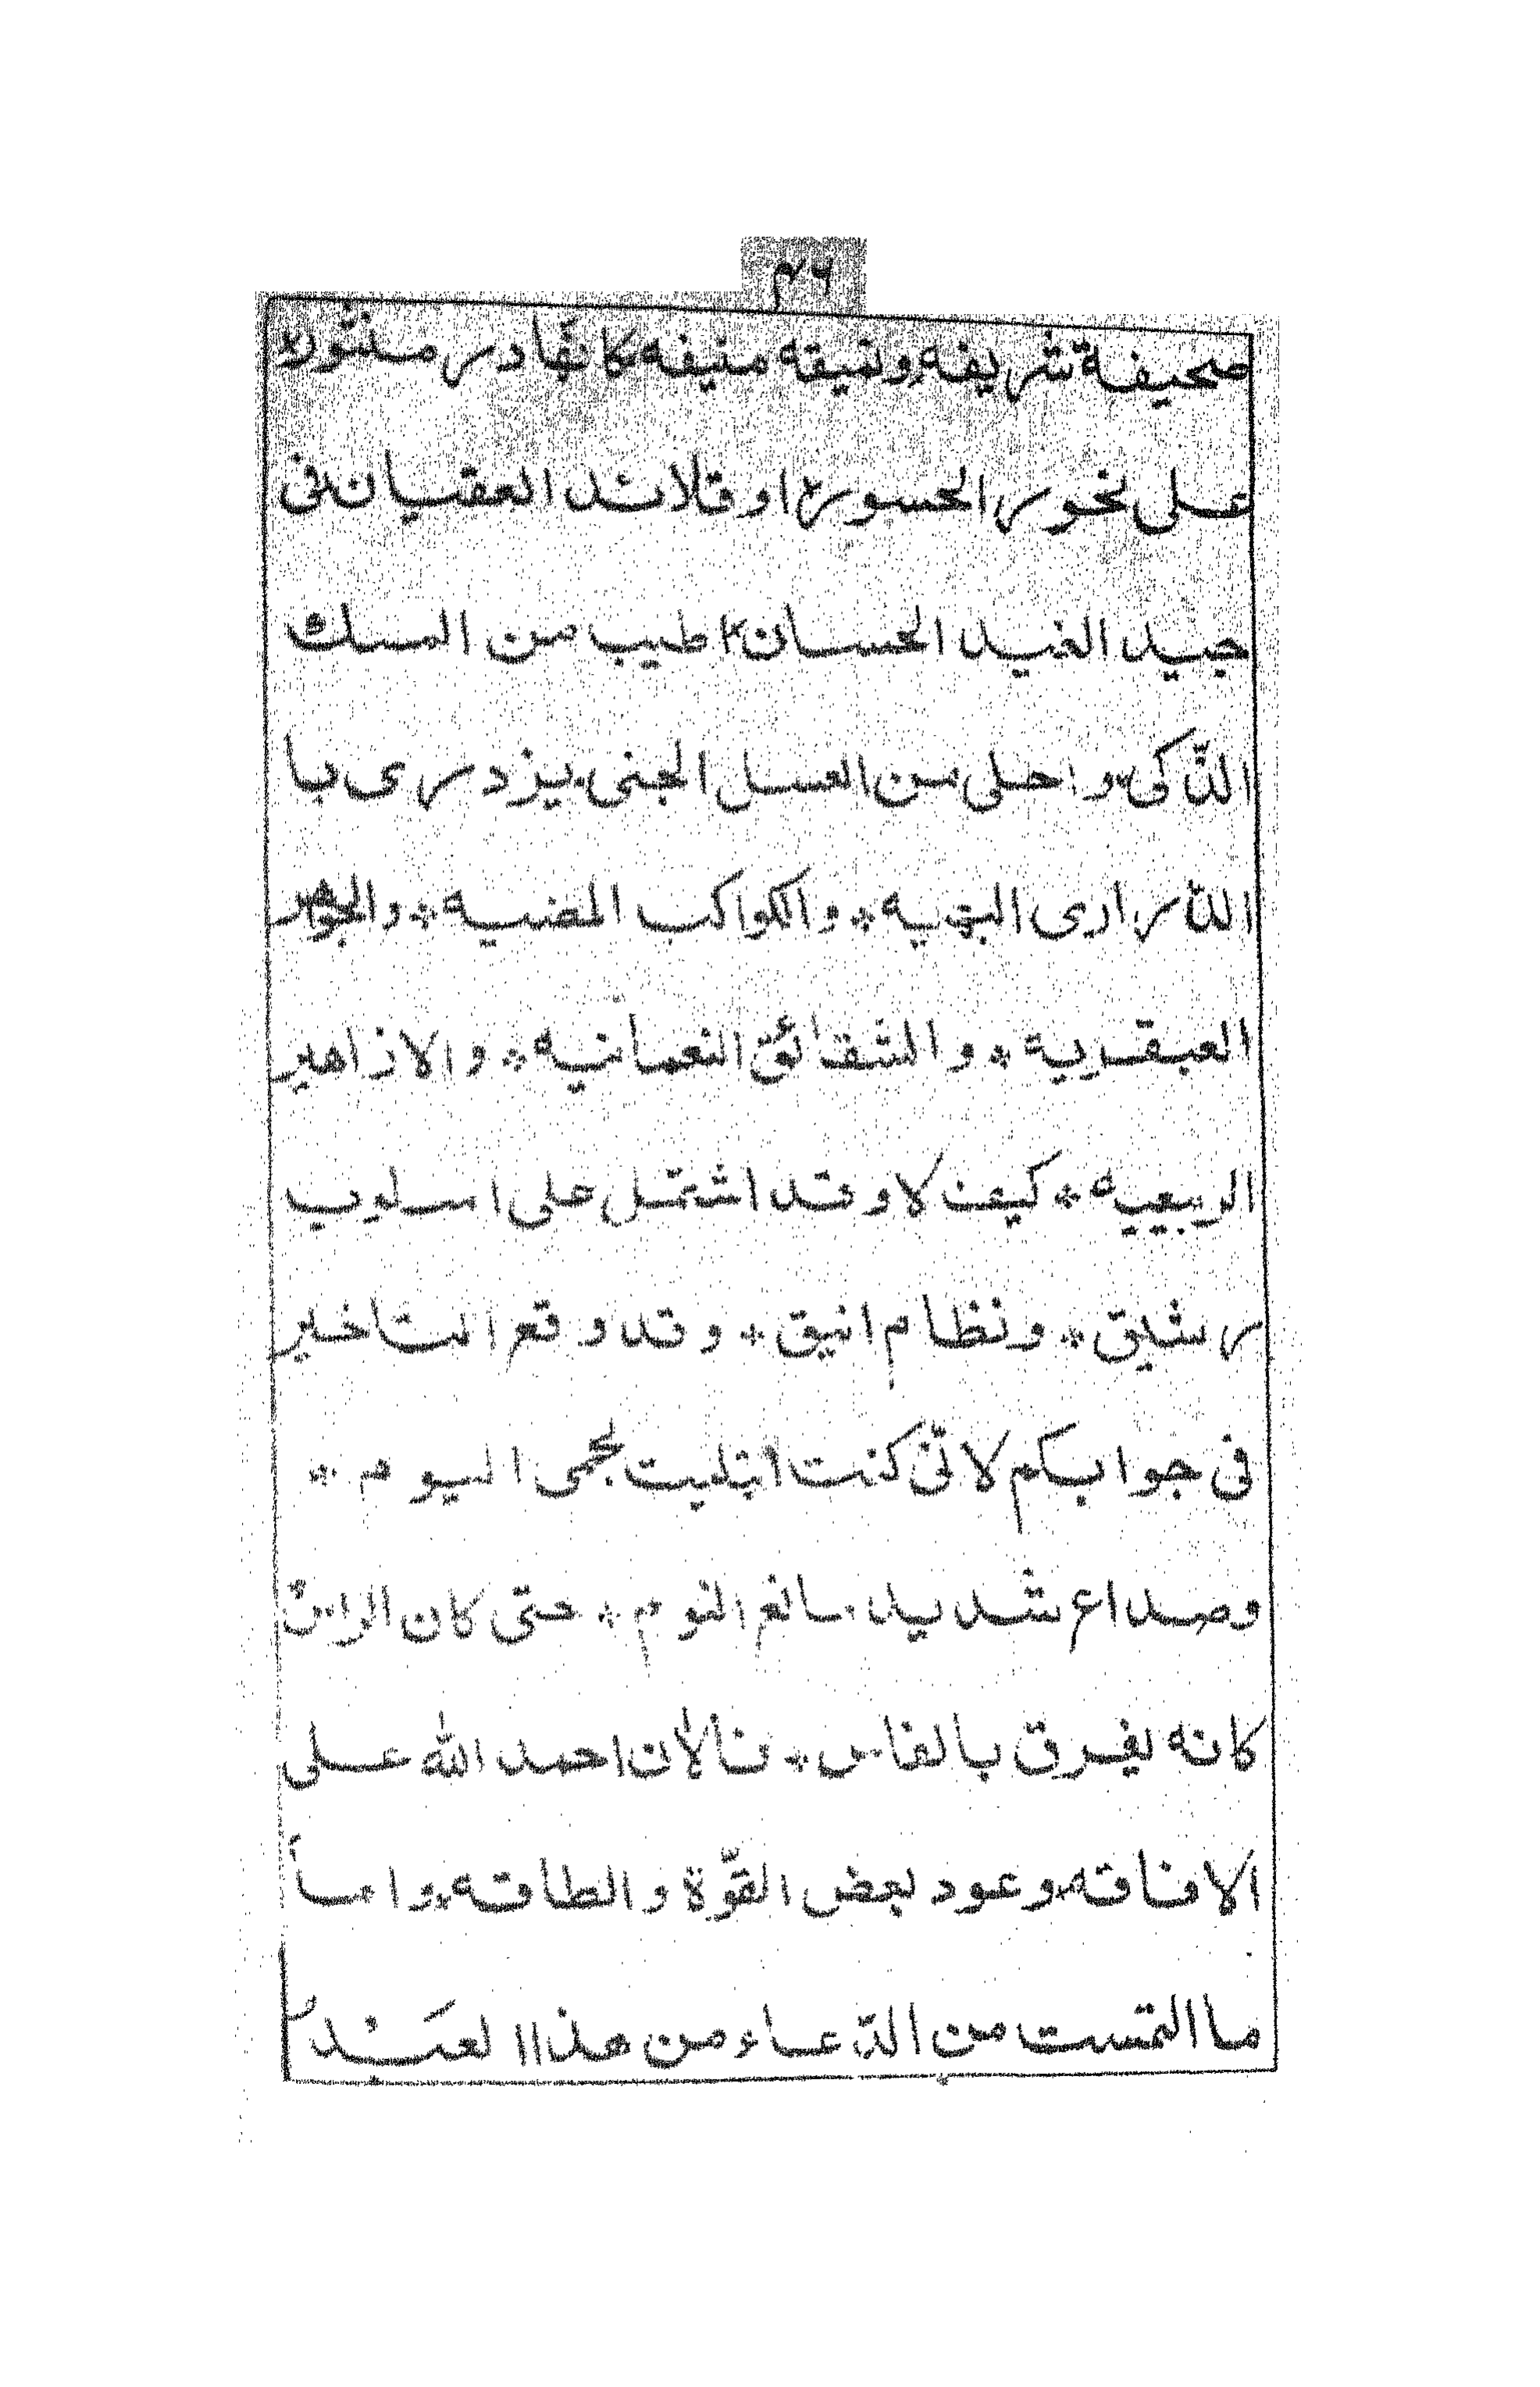 ٣٦
صحيفة شريفه ونميقه منيفه كانّها درر منثوره
على نحور الحسوره او قلائد العقيان فى
جيد الغيد الحسان اطيب من المسك
الذّكى و احلى من العسل الجنى يزدرى با
لدّرارى البهيه * و الكواكب المضيه * و الجواهر
العبقريه * و الشقائق النعمانيه * و الازاهير
الربيعيه * كيف لا و قد اشتمل على اسلوب
رشيق * و نظام انيق * و قد وقع التاخير
فى جوابكم لانّى كنت ابتليت بحمى اليوم *
وصداع شديد مانع النوم * حتى كان الراس
كانه يفرق بالفاس * فالان احمد الله على
الافاقه * وعود بعض القوّة و الطاقه * و اما
ما التمست من الدّعاء من هذا العبد